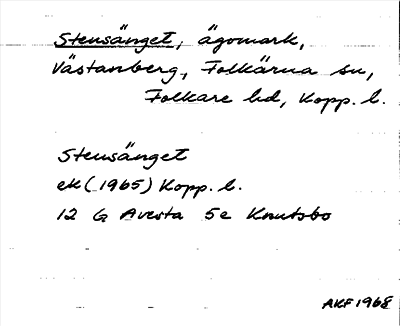 Stensänget, ägomark,
Västanberg, Folkärna sn,
Folkare hd, Kopp. l.
Stensänget
ek (1965) Kopp. l.
12 G Avesta 5e Knutsbo
AKF 1968